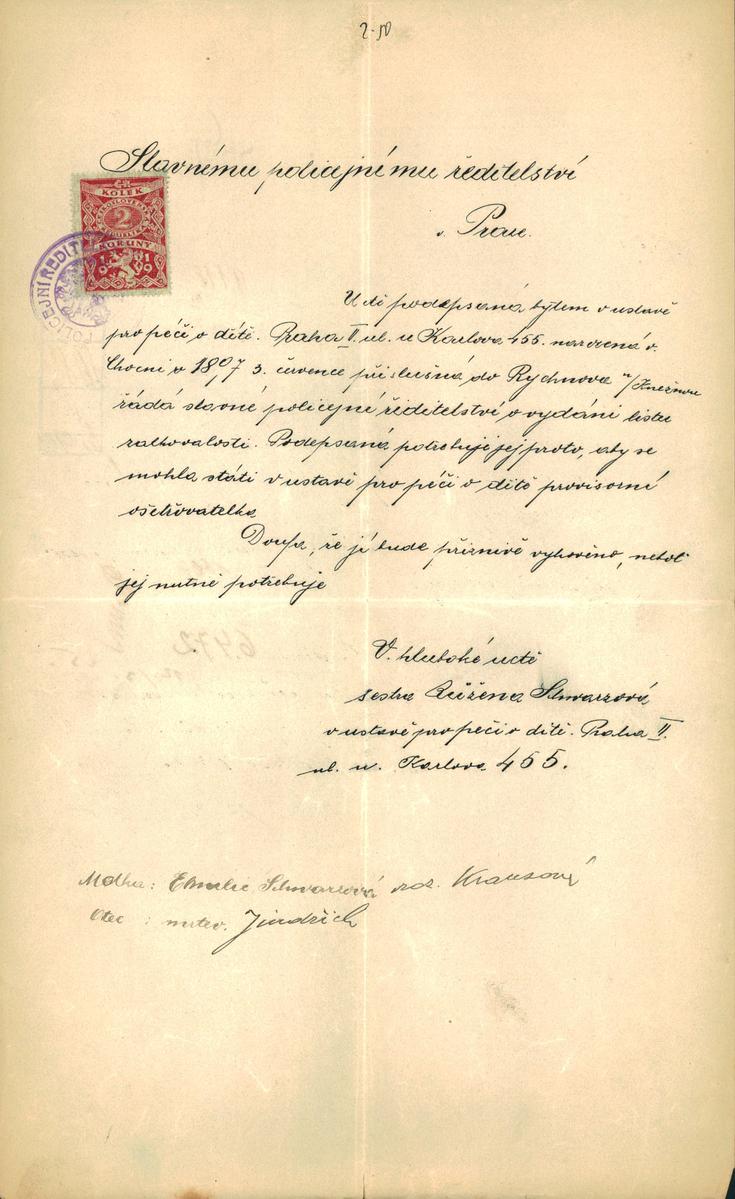 2·50
Slavnému policejnímu ředitelství
v. Praze.
ČR
KOLEK
ČESKOSLOVENSKÁ
REPUBLIKA
2
KORUNY
1919
POLICEJNÍ ŘEDIT
podepsaná bytem v ustavě
pro péči o dítě. Praha II ul. u Karlova 455. narozená v.
Chocni v 1897 3. července příslušná do Rychnova n/Kněžnou
žádá slavné policejní ředitelství o vydání listu
zachovalosti. Podepsaná potřebuje jej proto, aby se
mohla státi v ustavě pro péči o dítě provisorní
ošetřovatelka
Doufa, že jí bude příznivě vyhověno, neboť
jej nutně potřebuje
V hluboké uctě
sestra Růžena Schwarzová
v ustavě pro peči o dítě. Praha II.
ul. u. Karlova 455.
Matka: Emilie Schwarzová roz. Krausová
Otec : mrtev. Jindřich
6472